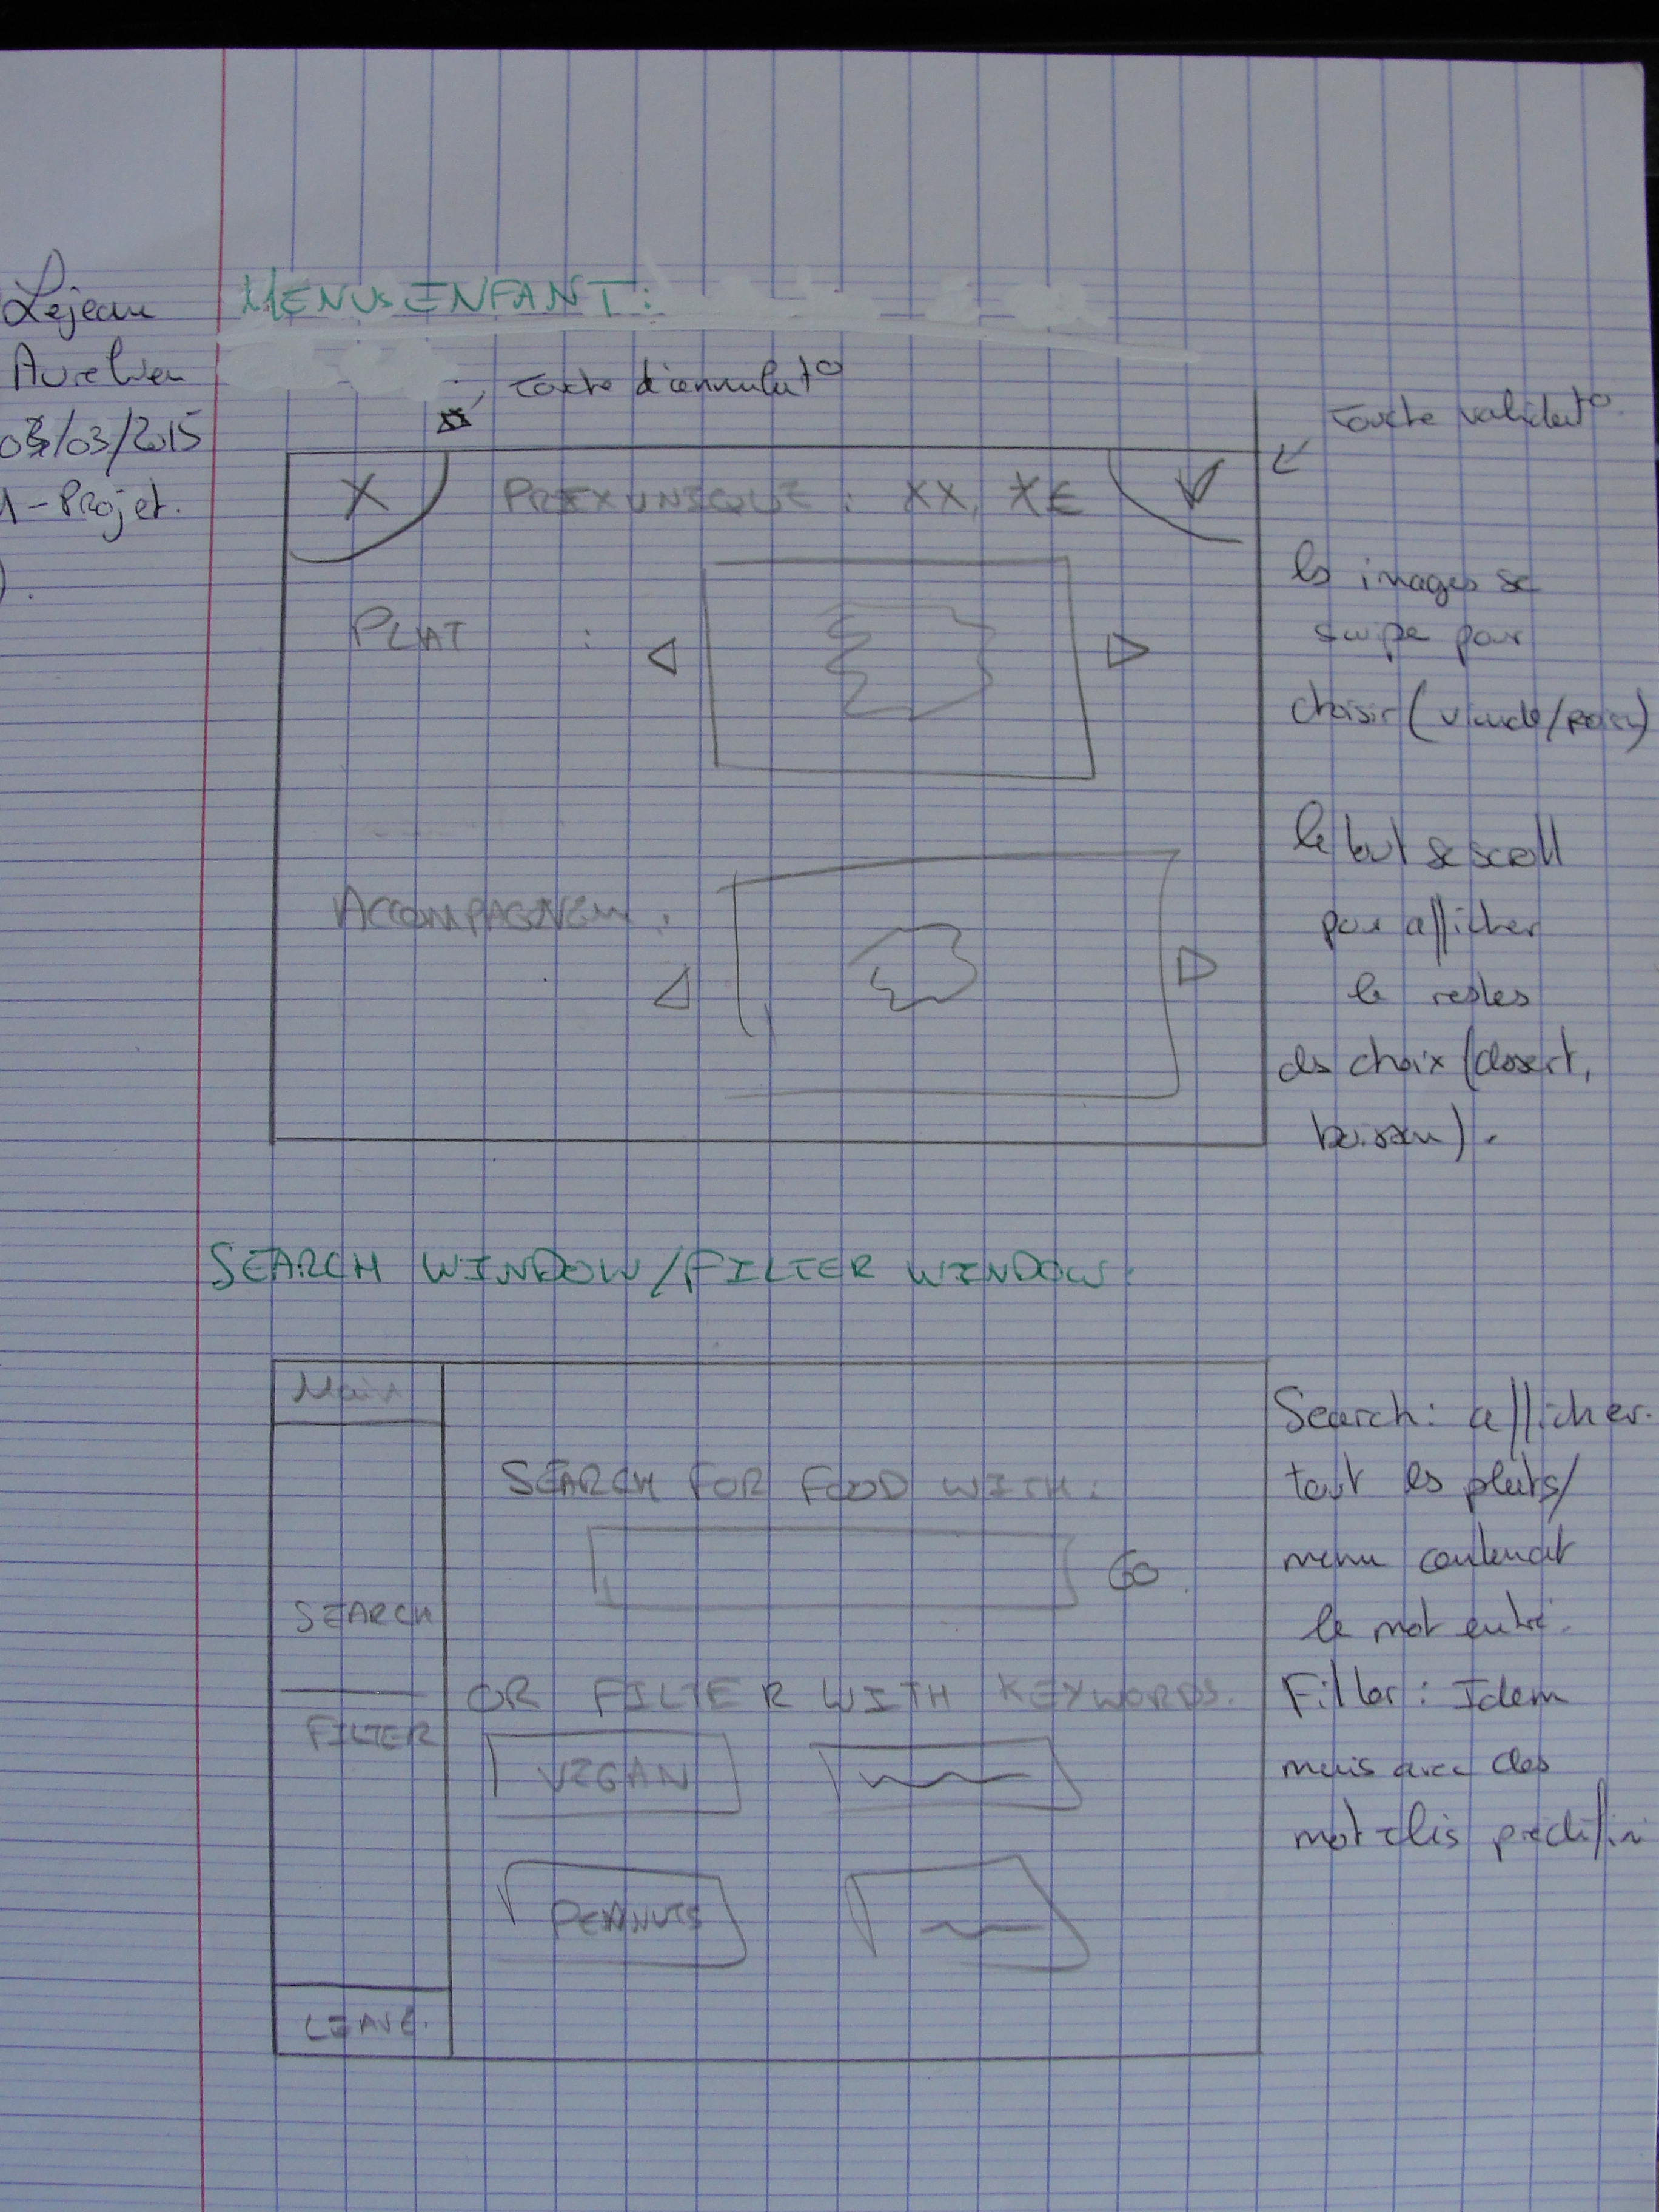 Lejeau
Aurelien
03/03/2015
1-Projet.
).
MENUS ENFANT:
Touche d'annulat°
Touche validat°
X PRIX UNIQUE : XX, X€ V
PLAT :
les images se
swipe pour
choisir (viande/poiss)
ACCOMPAGNEM :
le tout se scroll
pour afficher
le restes
des choix (dessert,
boisson).
SEARCH WINDOW/FILTER WINDOW:
Main
SEARCH
FILTER
LEAVE.
SEARCH FOR FOOD WITH:
GO
OR FILTER WITH KEYWORDS.
VEGAN
PEANUTS
Search: afficher
tout les plats/
menu contenant
le mot entré.
Filter: Idem
mais avec des
mot clés prédéfini